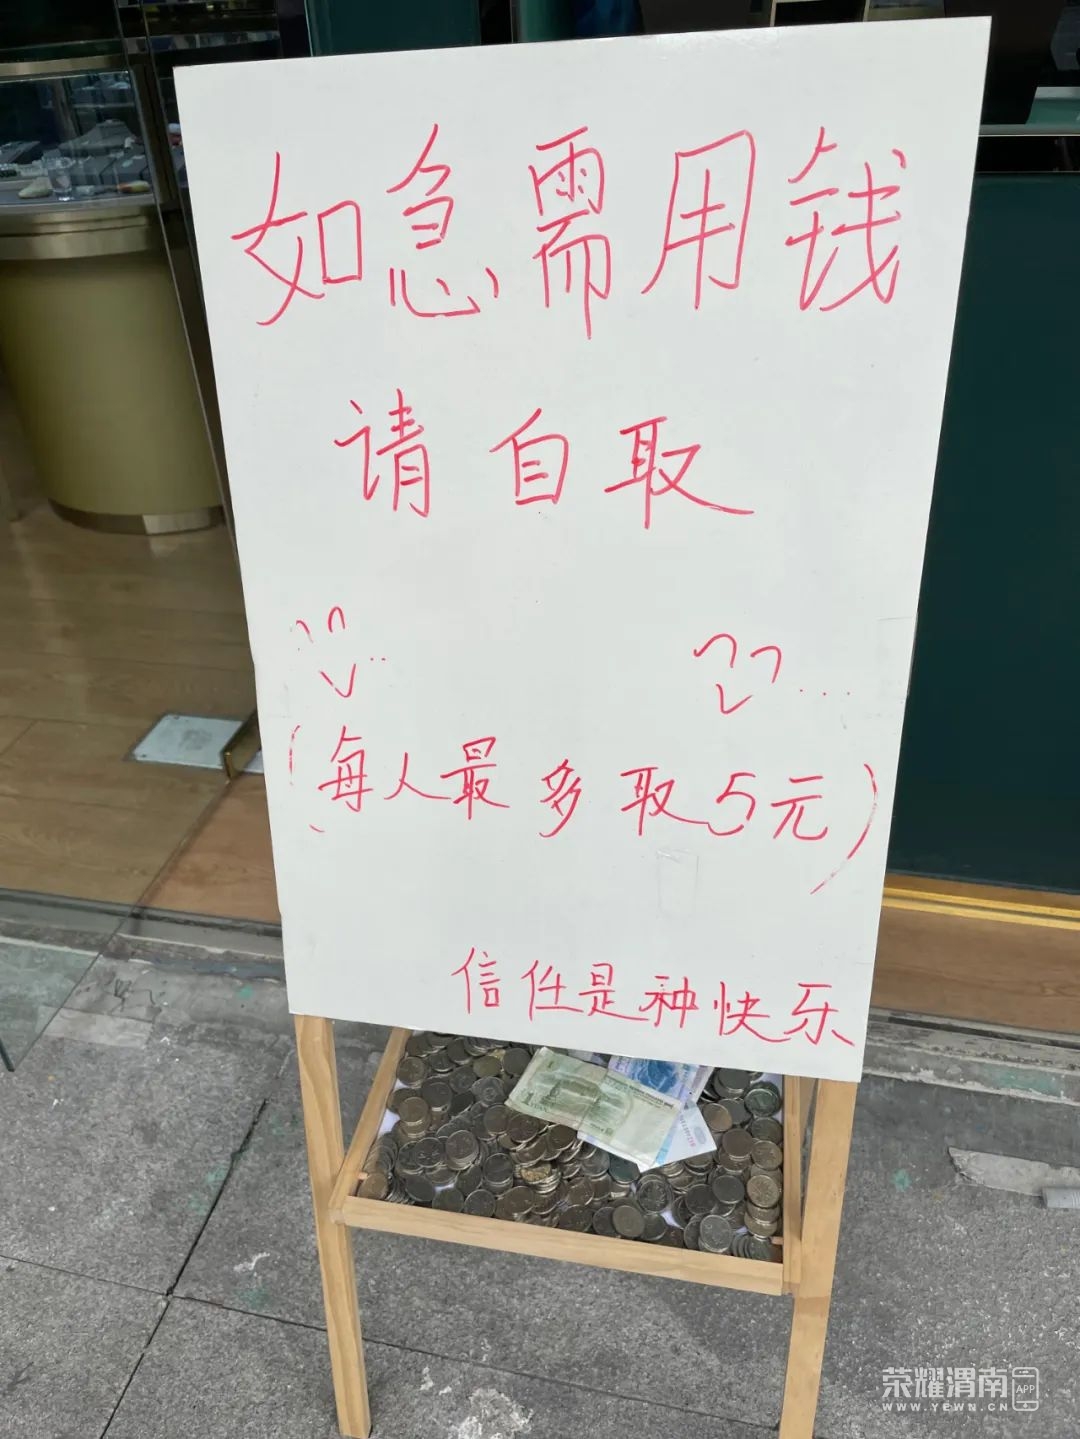 如急需用钱
请自取
(每人最多取5元)
信任是种快乐
1
荣耀渭南APP
WWW.YEWN.CN